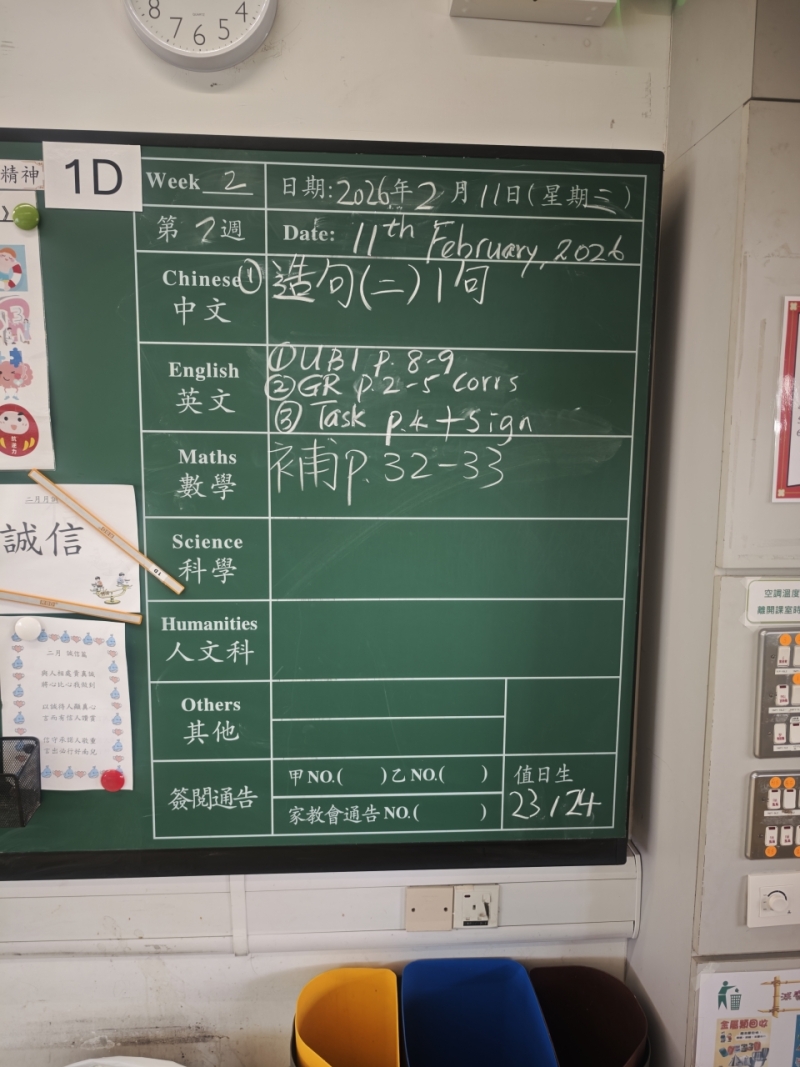 8 7 6 5 4
精神
1D
Week 2
日期: 2026年 2 月 11日(星期三)
第 2 週
Date: 11th February, 2026
Chinese
中文
① 造句(二) 1句
English
英文
① UB1 p. 8-9
② GR p.2-5 Corrs
③ Task p.4 + sign
Maths
數學
補 p. 32-33
Science
科學
Humanities
人文科
Others
其他
簽閱通告
甲NO.( )乙NO.( )
家教會通告NO.( )
值日生
23 / 24
誠信
二月 誠信篇
與人相處貴真誠
將心比心我做到
空調溫度
離開課室時